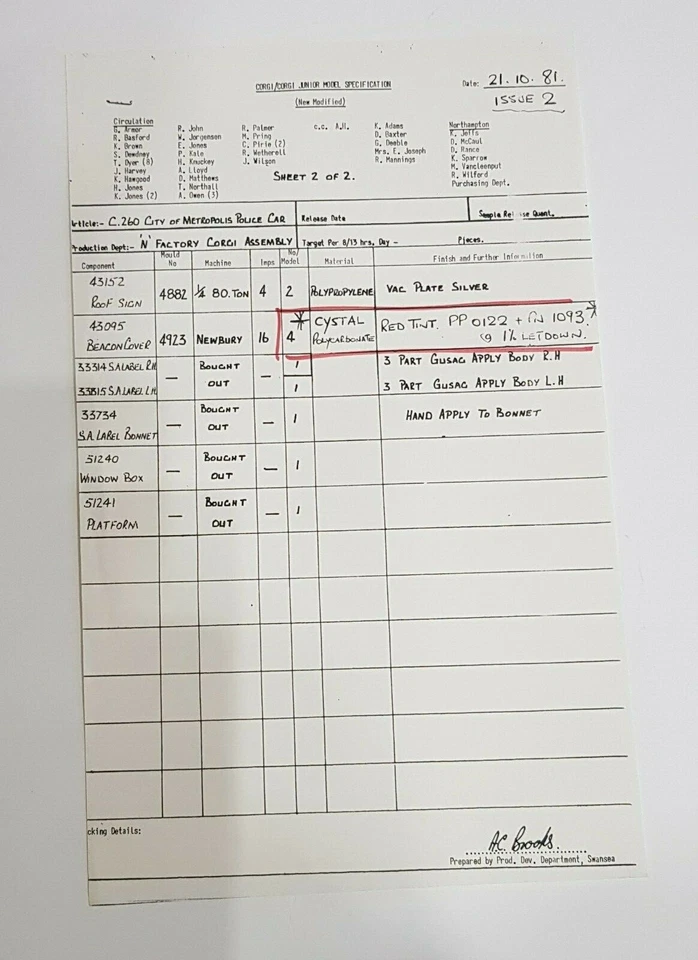 CORGI/CORGI JUNIOR MODEL SPECIFICATION
(New Modified)
Date: 21.10.81.
ISSUE 2
Circulation
G. Armor
R. Basford
K. Brown
S. Dewdney
T. Dyer (8)
J. Harvey
K. Hawgood
H. Jones
K. Jones (2)
R. John
W. Jorgensen
E. Jones
P. Kale
H. Knuckey
A. Lloyd
D. Matthews
T. Northall
A. Owen (3)
R. Palmer
M. Pring
C. Pirie (2)
R. Wetherell
J. Wilson
c.c. A.H.
K. Adams
D. Baxter
G. Deeble
Mrs. E. Joseph
R. Mannings
Northampton
K. Jeffs
D. McCaul
D. Rance
K. Sparrow
M. Vancleenput
R. Wilford
Purchasing Dept.
SHEET 2 OF 2.
Article:- C.260 CITY OF METROPOLIS POLICE CAR
Release Date
Sample Release Quant.
Production Dept:- 'N' FACTORY CORGI ASSEMBLY
Target Per 8/13 hrs, Day -
Pieces.
Component Mould No Machine Imps No/Model Material Finish and Further Information
43152 ROOF SIGN 4882 1/4 80.TON 4 2 POLYPROPYLENE VAC PLATE SILVER
43095 BEACON COVER 4923 NEWBURY 16 4 CYSTAL POLYCARBONATE RED TINT. PP 0122 + 1093. @ 1% LETDOWN.
33314 S.A LABEL R.H — BOUGHT OUT — 1 3 PART GUSAC APPLY BODY R.H
33815 S.A LABEL L.H 1 3 PART GUSAC APPLY BODY L.H
33734 S.A. LABEL BONNET — BOUGHT OUT — 1 HAND APPLY TO BONNET
51240 WINDOW BOX — BOUGHT OUT — 1
51241 PLATFORM — BOUGHT OUT — 1
cking Details:
A.C. Brooks.
Prepared by Prod. Dev. Department, Swansea